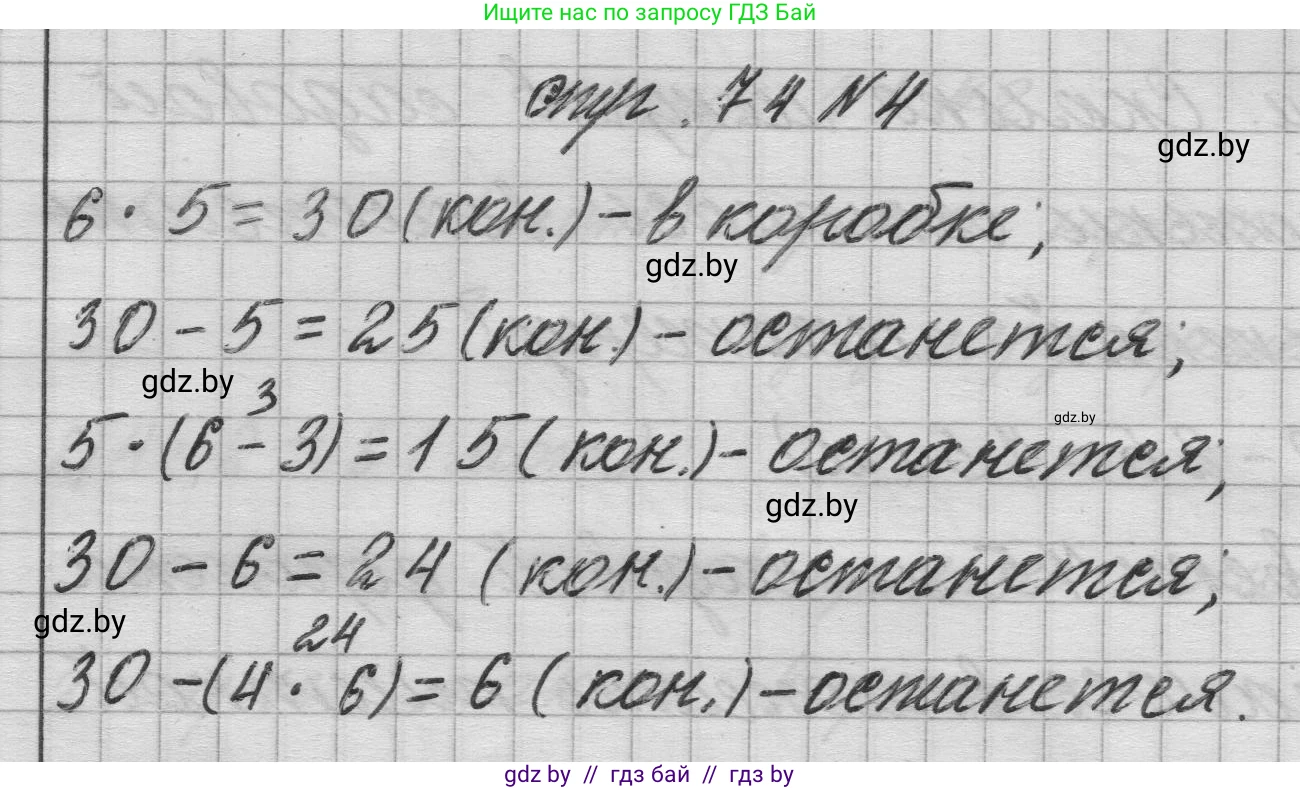 Ищите нас по запросу ГДЗ Бай
стр. 74 №4
gdz.by
6 · 5 = 30 (кон.) – в коробке;
gdz.by
30 – 5 = 25 (кон.) – останется;
gdz.by
3
gdz.by
5 · (6 – 3) = 15 (кон.) – останется;
gdz.by
30 – 6 = 24 (кон.) – останется;
gdz.by
24
30 – (4 · 6) = 6 (кон.) – останется.
gdz.by // гдз бай // гдз by